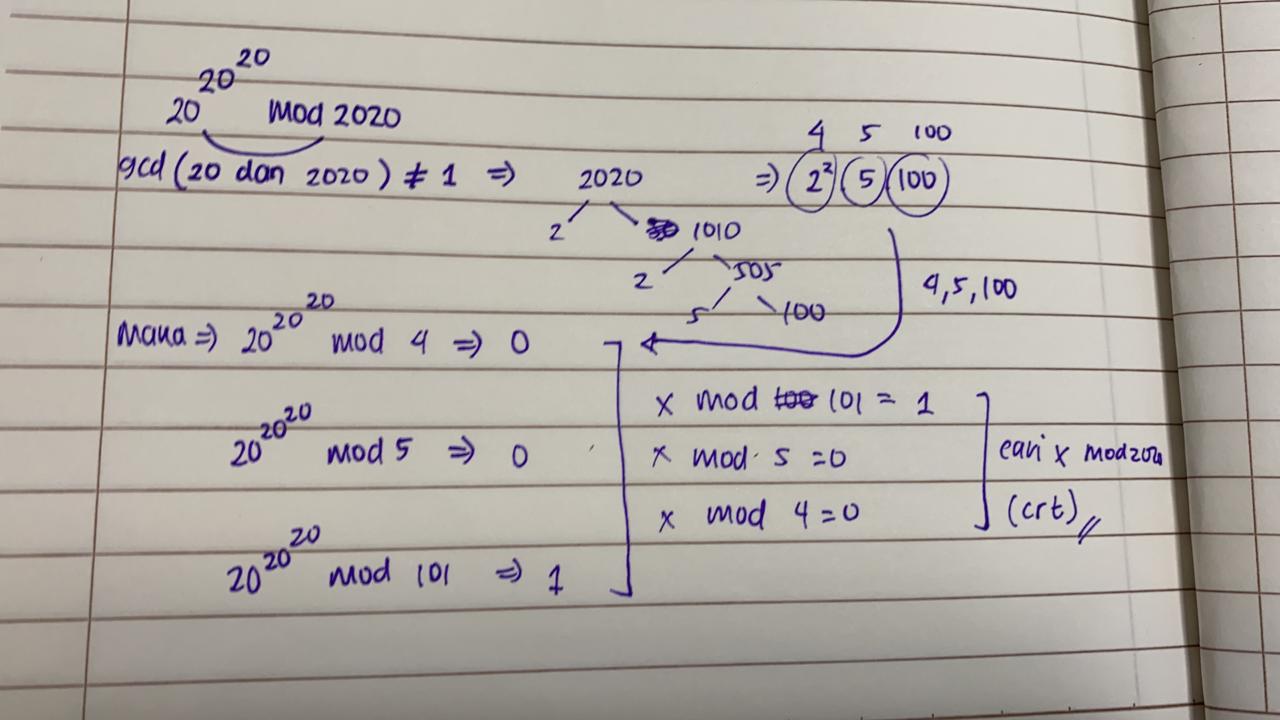 20^20^20 mod 2020
4 5 100
gcd (20 dan 2020) ≠ 1 ⇒ 2020 ⇒ 2² 5 100
2 1010
2 505
5 100
4,5,100
Maka ⇒ 20^20^20 mod 4 ⇒ 0
20^20^20 mod 5 ⇒ 0
20^20^20 mod 101 ⇒ 1
x mod 101 = 1
x mod 5 = 0
x mod 4 = 0
cari x mod
(crt)